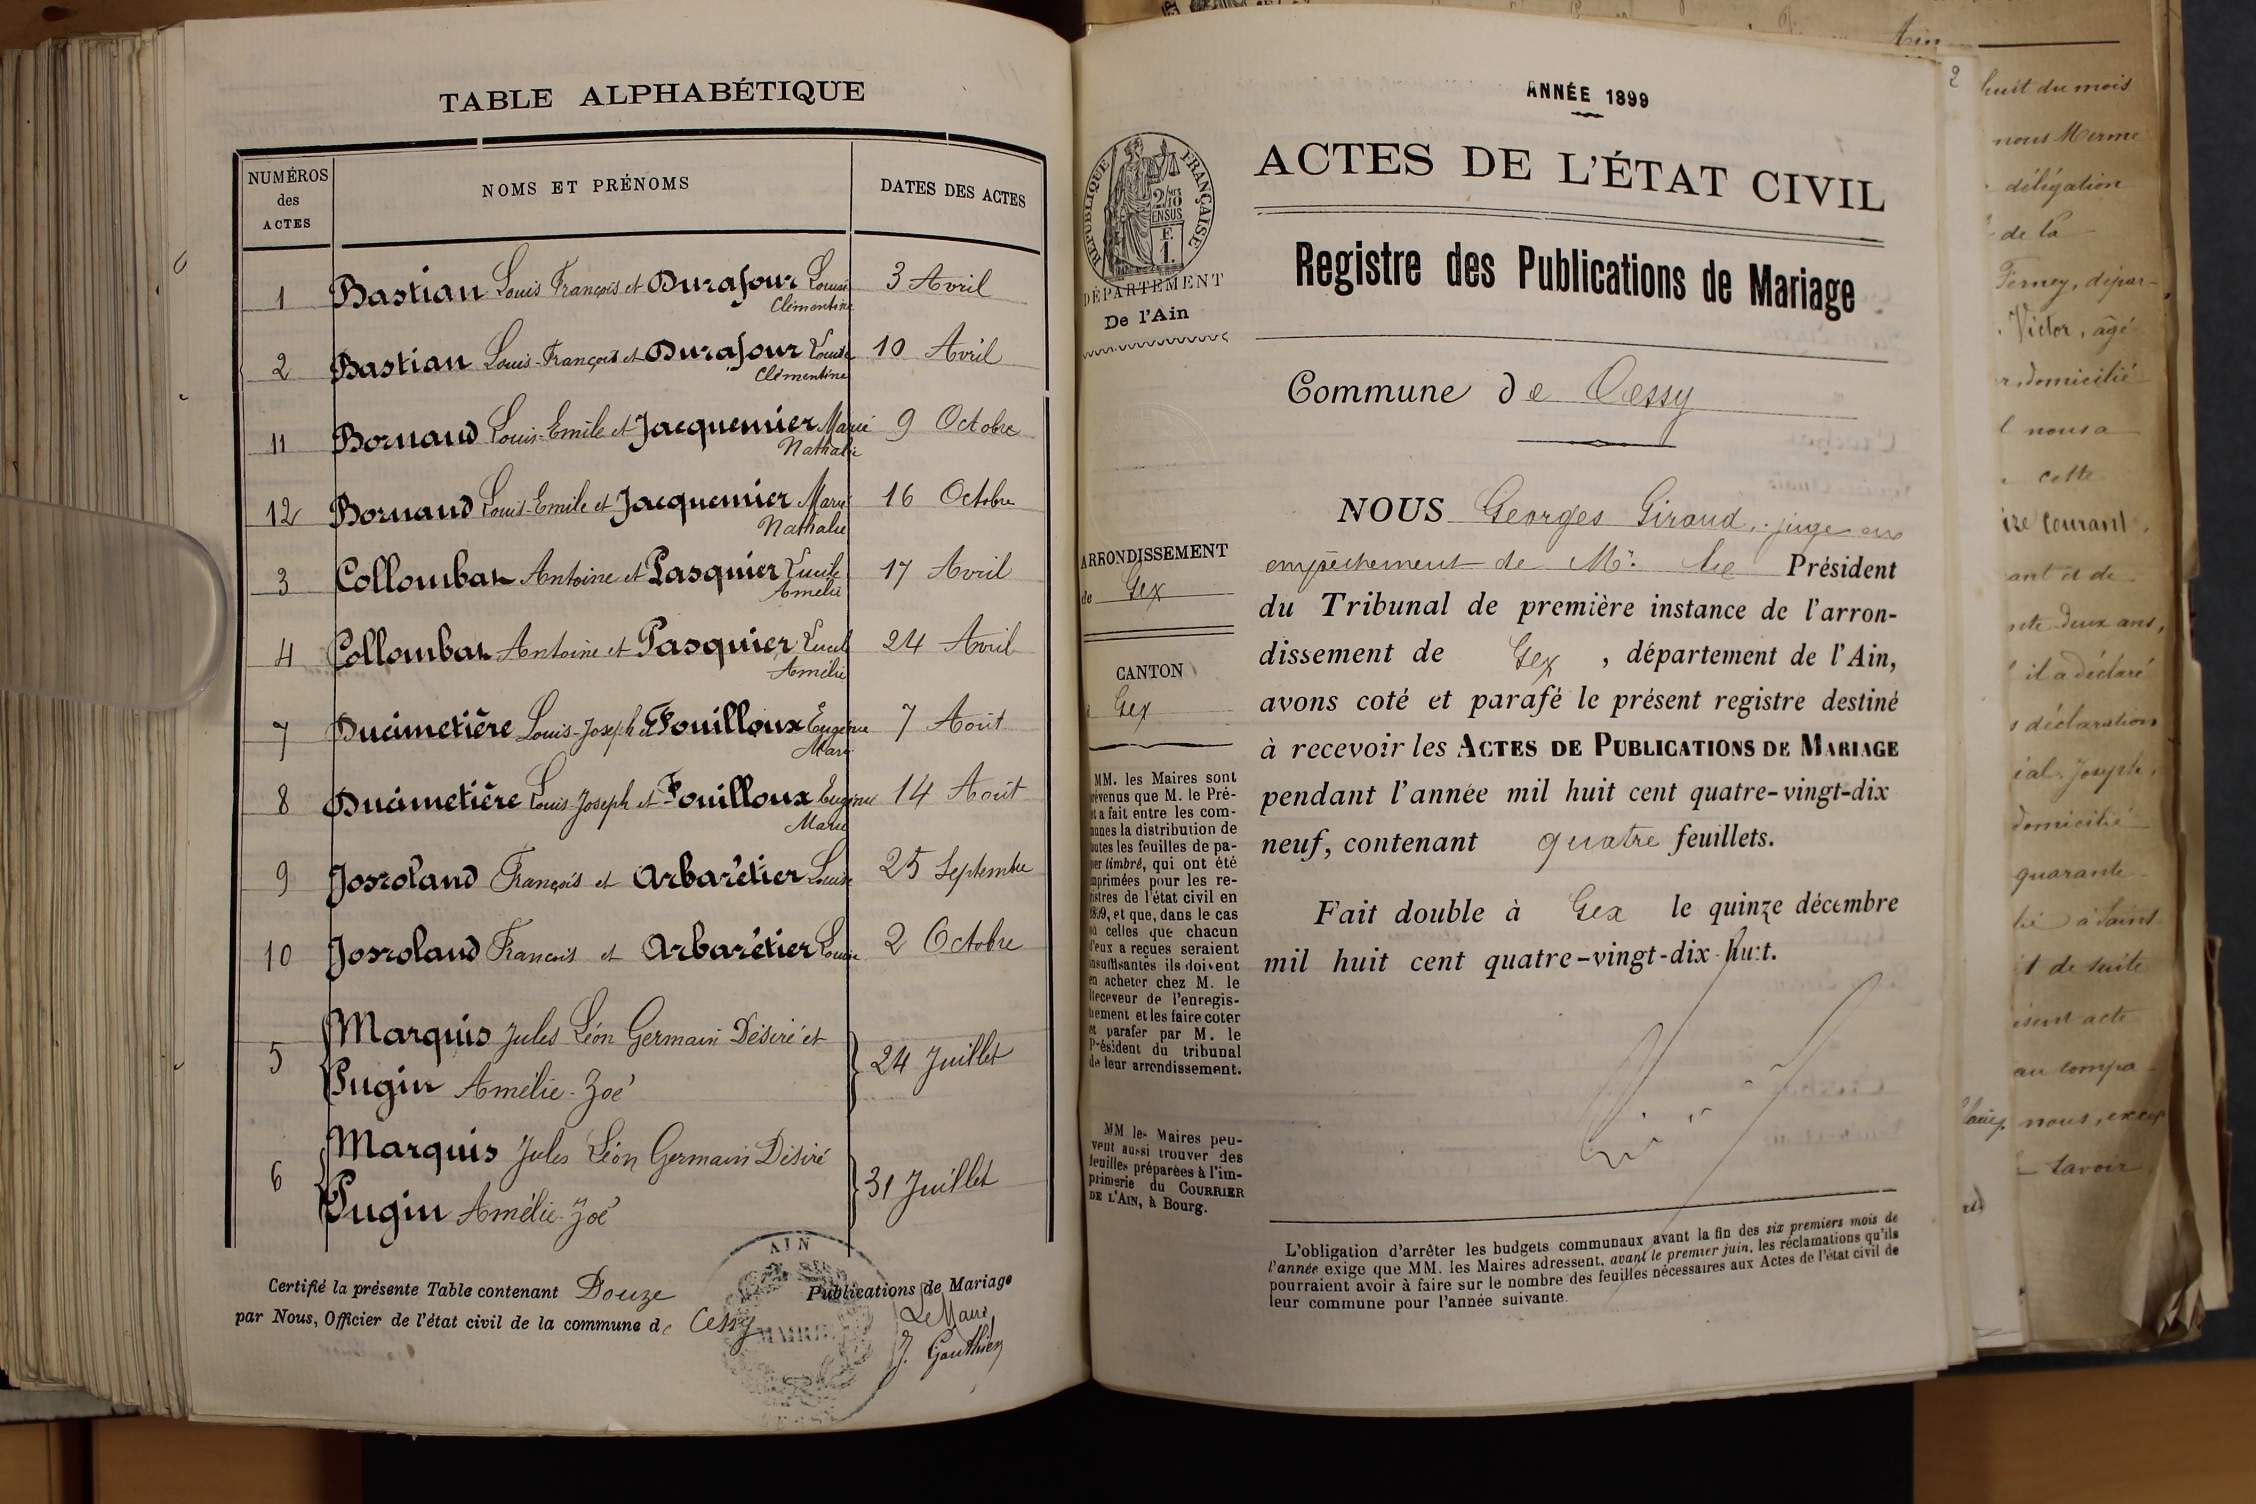 TABLE ALPHABÉTIQUE
NUMÉROS des ACTES NOMS ET PRÉNOMS DATES DES ACTES
1 Bastian Louis François et Durafour Louise Clémentine 3 Avril
2 Bastian Louis-François et Durafour Louise Clémentine 10 Avril
11 Bornand Louis-Emile et Jacquemier Marie Nathalie 9 Octobre
12 Bornand Louis-Emile et Jacquemier Marie Nathalie 16 Octobre
3 Collombat Antoine et Pasquier Lucile Amélie 17 Avril
4 Collombat Antoine et Pasquier Lucile Amélie 24 Avril
7 Ducimetière Louis-Joseph et Fouilloux Eugénie Marie 7 Août
8 Ducimetière Louis-Joseph et Fouilloux Eugénie Marie 14 Août
9 Josroland François et Arbarétier Louise 25 Septembre
10 Josroland François et Arbarétier Louise 2 Octobre
5 Marquis Jules Léon Germain Désiré et
Pugin Amélie-Zoé 24 Juillet
6 Marquis Jules Léon Germain Désiré
Pugin Amélie-Zoé 31 Juillet
Certifié la présente Table contenant Douze Publications de Mariage
par Nous, Officier de l'état civil de la commune de Cessy
Le Maire,
J. Gauthier
AIN
MAIRIE
ANNÉE 1899
ACTES DE L'ÉTAT CIVIL
Registre des Publications de Mariage
Commune de Cessy
NOUS Georges Giroud, juge en
empêchement de Mr. le Président
du Tribunal de première instance de l'arron-
dissement de Gex, département de l'Ain,
avons coté et parafé le présent registre destiné
à recevoir les ACTES DE PUBLICATIONS DE MARIAGE
pendant l'année mil huit cent quatre-vingt-dix
neuf, contenant quatre feuillets.
Fait double à Gex le quinze décembre
mil huit cent quatre-vingt-dix-huit.
L'obligation d'arrêter les budgets communaux avant la fin des six premiers mois de
l'année exige que MM. les Maires adressent, avant le premier juin, les réclamations qu'ils
pourraient avoir à faire sur le nombre des feuilles nécessaires aux Actes de l'état civil de
leur commune pour l'année suivante.
RÉPUBLIQUE FRANÇAISE
2/10 EN SUS
F.
1.
DÉPARTEMENT
De l'Ain
ARRONDISSEMENT
de Gex
CANTON
Gex
MM. les Maires sont
prévenus que M. le Pré-
et a fait entre les com-
munes la distribution de
toutes les feuilles de pa-
pier timbré, qui ont été
imprimées pour les re-
gistres de l'état civil en
1899, et que, dans le cas
où celles que chacun
d'eux a reçues seraient
insuffisantes ils doivent
en acheter chez M. le
Receveur de l'enregis-
trement et les faire coter
et parafer par M. le
Président du tribunal
de leur arrondissement.
MM les Maires peu-
vent aussi trouver des
feuilles préparées à l'im-
primerie du COURRIER
DE L'AIN, à Bourg.
2
Ain
huit du mois
nous Merme
délégation
de la
Ferney, dépar-
Victor, âgé
domicilié
nous a
cette
courant,
ant et de
deux ans,
il a déclaré
déclaration
Joseph,
domicilié
quarante
à Saint
de suite
acte
au compa-
nous, excep
savoir